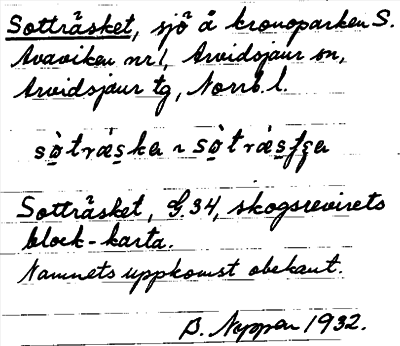 Sotträsket, sjö å kronoparken S.
Avaviken nr 1, Arvidsjaur sn,
Arvidsjaur tg, Norrb. l.
sò̀träs̥ka ~ sò̀träs̥ʃga
Sotträsket, G. 34, skogsrevirets
block-karta.
Namnets uppkomst obekant.
B. Nyppen 1932.